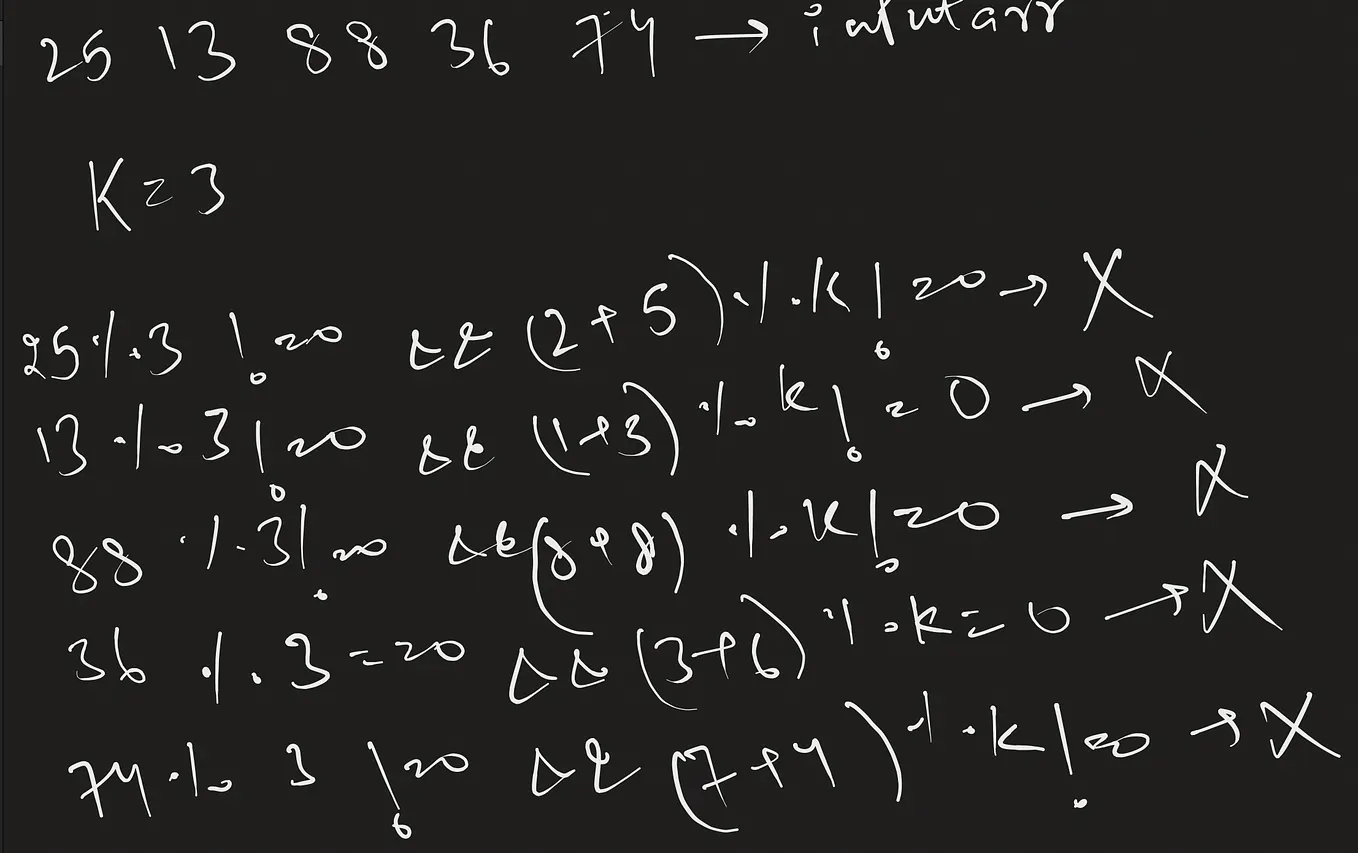 25 13 88 36 74 → inputarr
K = 3
25 % 3 != 0 && (2 + 5) % K != 0 → X
13 % 3 != 0 && (1 + 3) % K != 0 → X
88 % 3 != 0 && (8 + 8) % K != 0 → X
36 % 3 == 0 && (3 + 6) % K = 0 → X
74 % 3 != 0 && (7 + 4) % K != 0 → X